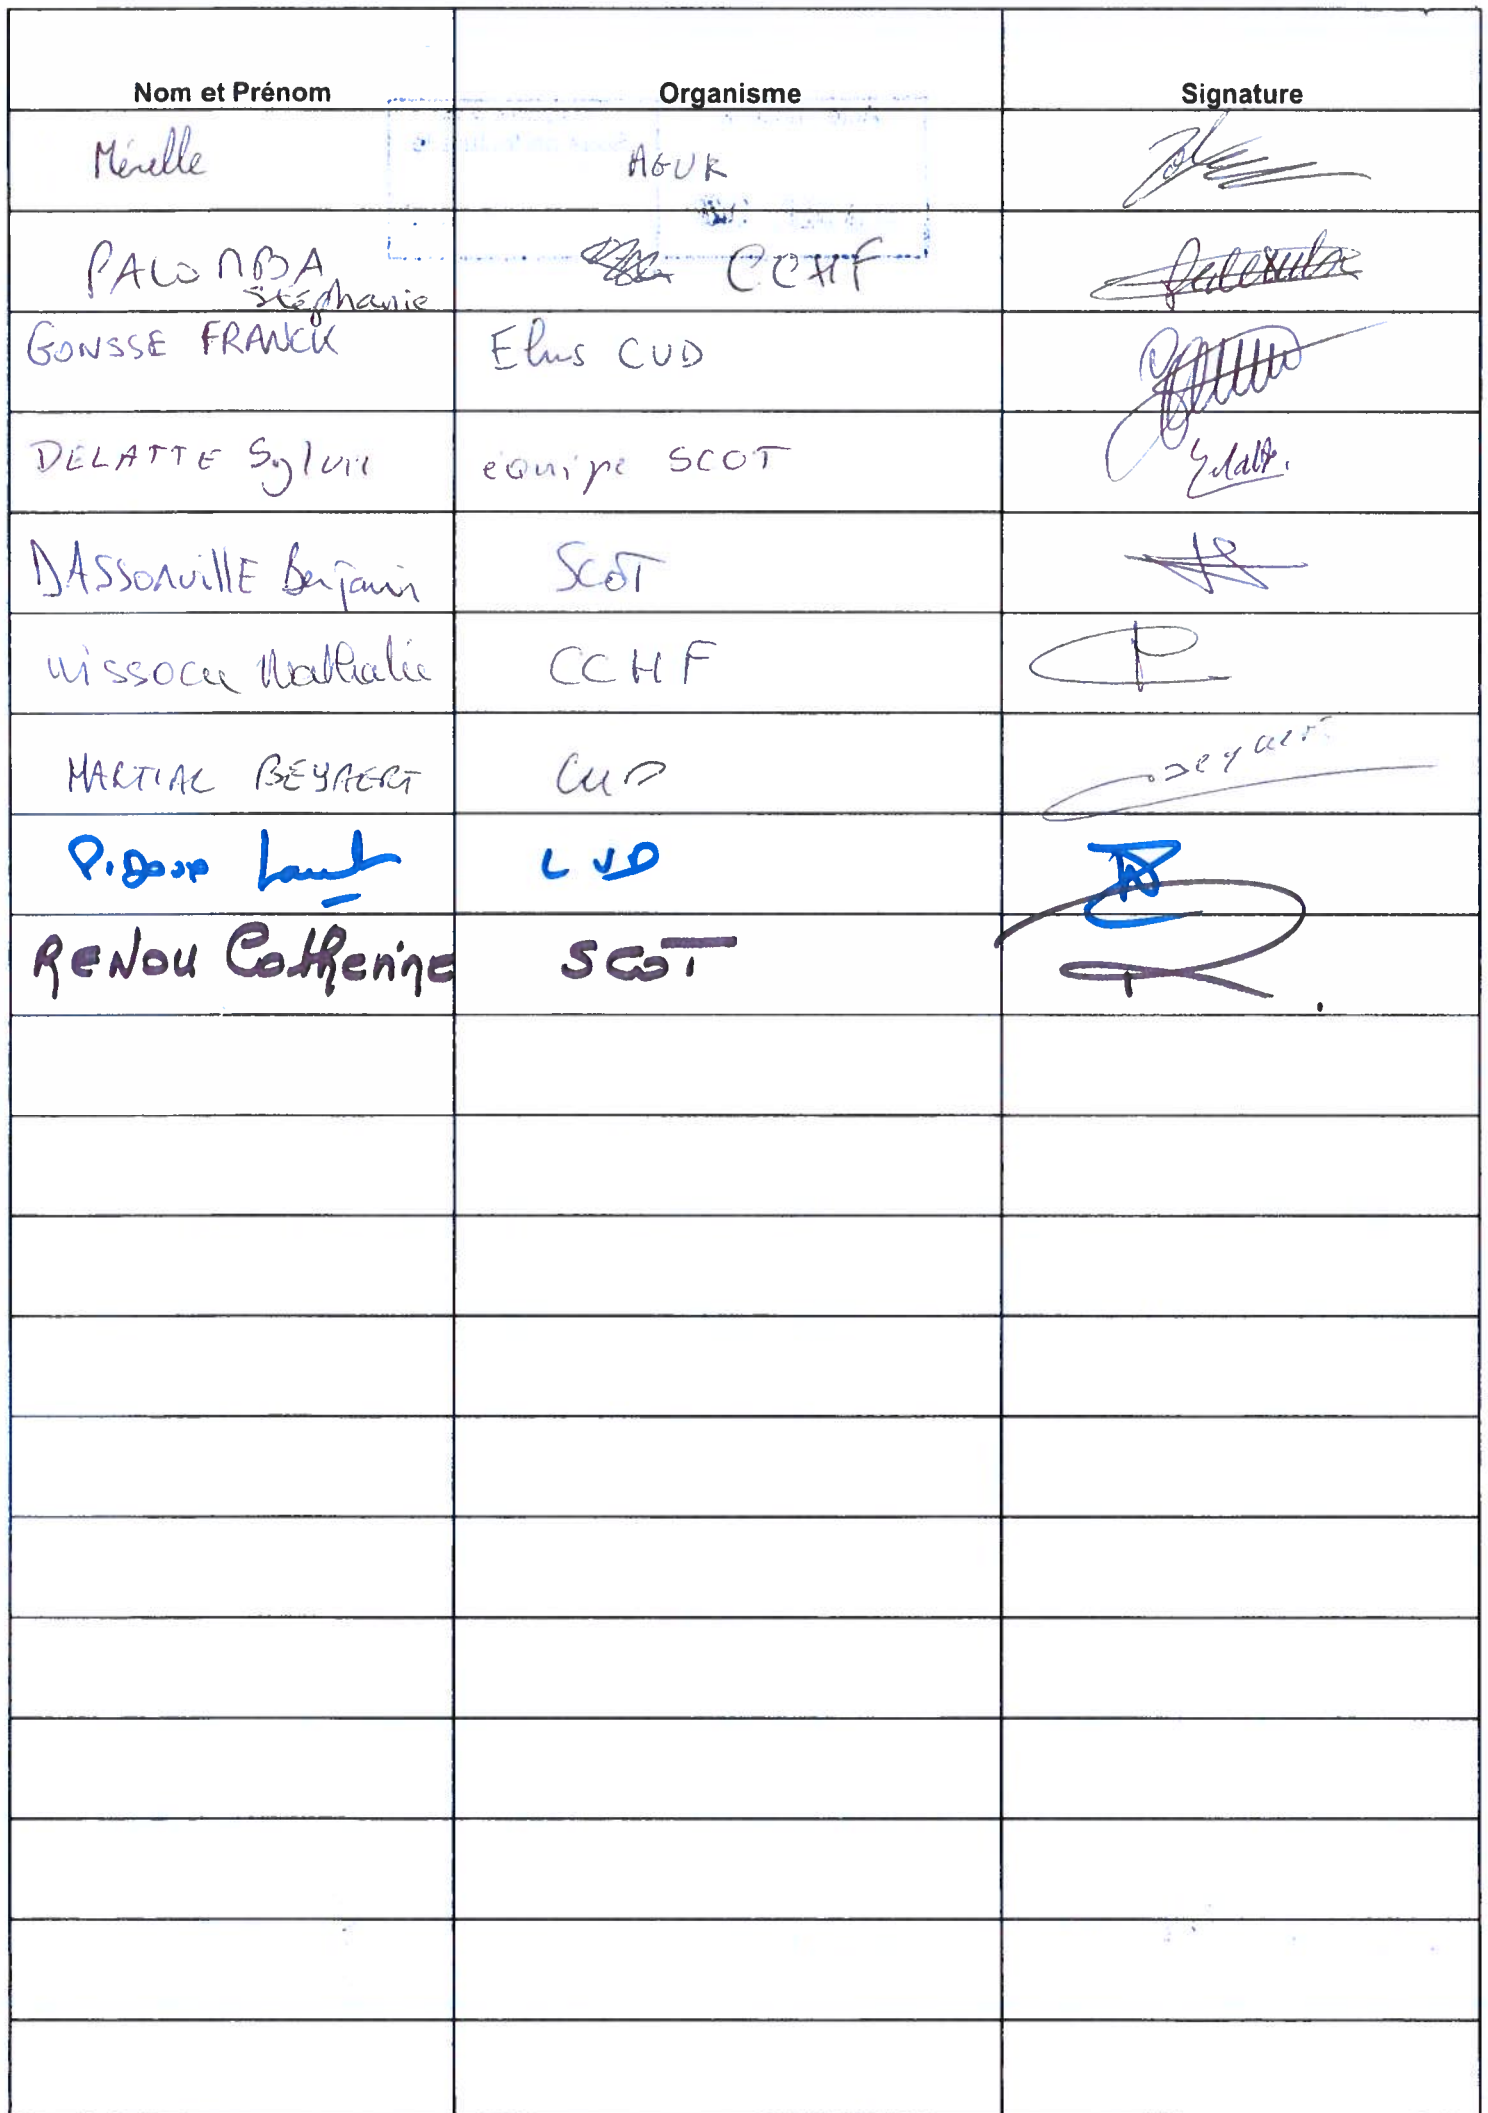 Nom et Prénom Organisme Signature
Mérelle AGUR
PALOMBA CCHF
Stéphanie
GONSSE FRANCK Elus CUD
DELATTE Sylvin équipe SCOT
DASSONVILLE Benjamin SCOT
WISSOCQ Nathalie CCHF
MARTIAL BEYAERT CUD
RENOU Catherine SCOT